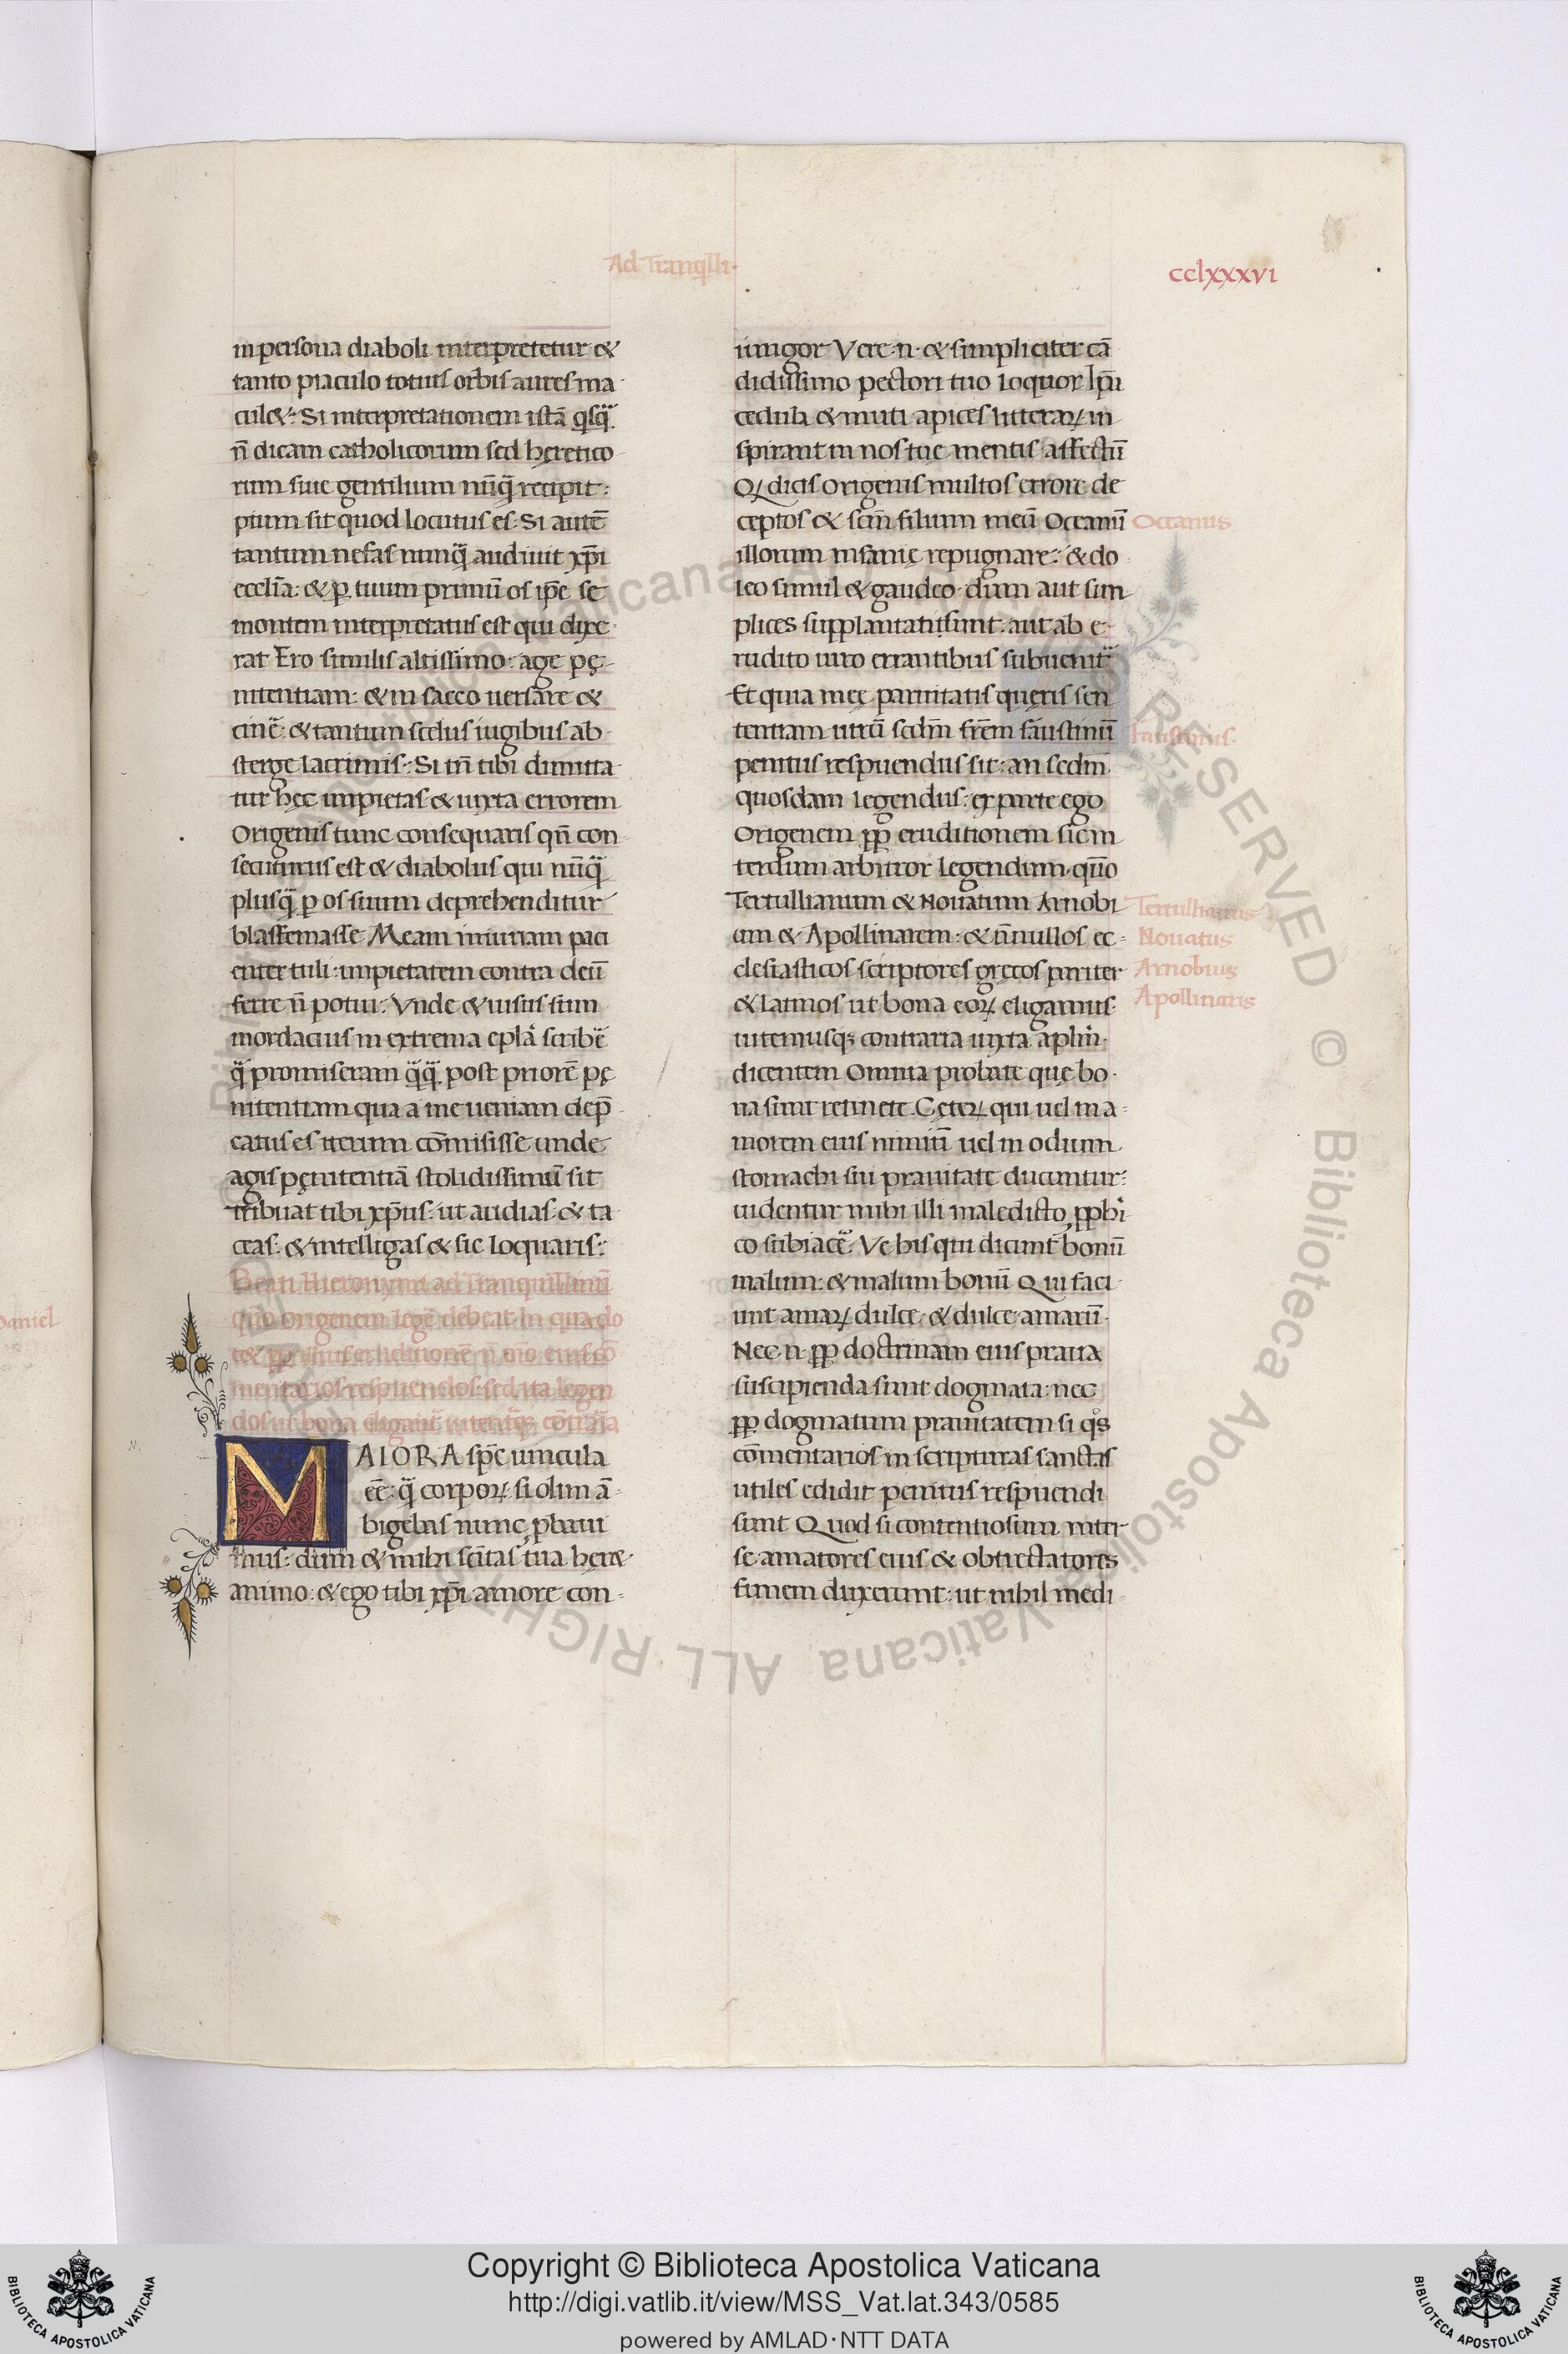 Ad Tranq̄lli·
cclxxxvi
in persona diaboli interpretetur &
tanto piaculo totius orbis aures ma-
cul&: Si interpretationem istā q̄sq̄
n̄ dicam catholicorum sed hęretico
rum siue gentilium nūq̄ recipit:
pium sit quod locutus es: Si autē
tantum nefas nunq̄ audiuit xp̄i
ecclīa: & ꝑ tuum primū os ip̄e se
montem interpretatus est qui dixe-
rat Ero similis altissimo: age pę-
nitentiam: & in sacco uersare &
cinē: & tantum scelus iugibus ab-
sterge lacrimis: Si tn̄ tibi dimitta-
tur hęc impietas & iuxta errorem
Origenis tunc consequaris qn̄ con-
secuturus est & diabolus qui nūq̄
plusq̄ ꝑ os suum deprehenditur
blasfemasse. Meam iniuriam paci
enter tuli: impietatem contra deū
ferre n̄ potui: Vnde & uisus sum
mordacius in extrema epl̄a scribē
q̄ promiseram q̄q̄ post priorē pę
nitentiam qua a me ueniam dep̄-
catus es iterum cōmisisse unde
agis pęnitentiā stolidissimū sit
tribuat tibi xp̄us: ut audias: & ta-
ceas: & intelligas & sic loquaris:
Beati Hieronymi ad Tranquillinū
quō origenem legē debeat In qua do
c& ꝓꝑ eius eruditionē n̄ oīo eius cō
mentarios respuendos: sed ita legen
dos ut bona eligant̄ uitent̄qꝫ cōtrāia
MAIORA sp̄c uincula
eē: q̄ corpoꝝ si olim ā-
bigebas nunc ꝓbaui
mus: dum & mihi scītas tua hęre-
animo: & ego tibi xp̄i amore con-
iungor Vere·n·& simpliciter cā
didissimo pectori tuo loquor Ip̄a
cedula & muti apices litteraꝝ in
spirant in nos tuę mentis affectū
Qꝫ dicis Origenis multos errore de
ceptos & scm̄ filium meū Oceanū
illorum insanię repugnare: & do
leo simul & gaudeo dum aut sim
plices supplantati sunt: aut ab e-
rudito uiro errantibus subuenit̄
Et quia meę paruitatis quęris sen
tentiam utrū scdm̄ frēm faustinū
penitus respuendus sit: an scdm̄
quosdam legendus: ex parte ego
Origenem ꝓꝑ eruditionem sic in
terdum arbitror legendum quō
Tertullianum & Nouatum Arnobi-
um & Apollinarem: & n̄nullos ec-
clesiasticos scriptores gręcos pariter
& latinos ut bona eoꝝ eligamus
uitemusqꝫ contraria iuxta aplm̄·
dicentem Omnia probate quę bo-
na sunt retinete. Ceteꝝ qui uel in a-
morem eius nimiū uel in odium
stomachi sui prauitate ducuntur:
uidentur mihi illi maledicto ꝓphi
co subiacē: Ve his qui dicunt bonū
malum: & malum bonū Qui faci
unt amaꝝ dulce: & dulce amarū
Nec·n·ꝓꝑ doctrinam eius praua
suscipienda sunt dogmata: nec
ꝓꝑ dogmatum prauitatem si qͦs
cōmentarios in scripturas sanctas
utiles edidit penitus respuendi
sunt Quod si contentiosum inter
se amatores eius & obtrectatores
funem duxerunt: ut nihil medi-
Oceanus
faustinus·
Tertullianus
Nouatus
Arnobius
Apollinaris
Daniel
Copyright © Biblioteca Apostolica Vaticana
http://digi.vatlib.it/view/MSS_Vat.lat.343/0585
powered by AMLAD·NTT DATA
BIBLIOTECA APOSTOLICA VATICANA
BIBLIOTECA APOSTOLICA VATICANA
© Biblioteca Apostolica Vaticana ALL RIGHTS RESERVED